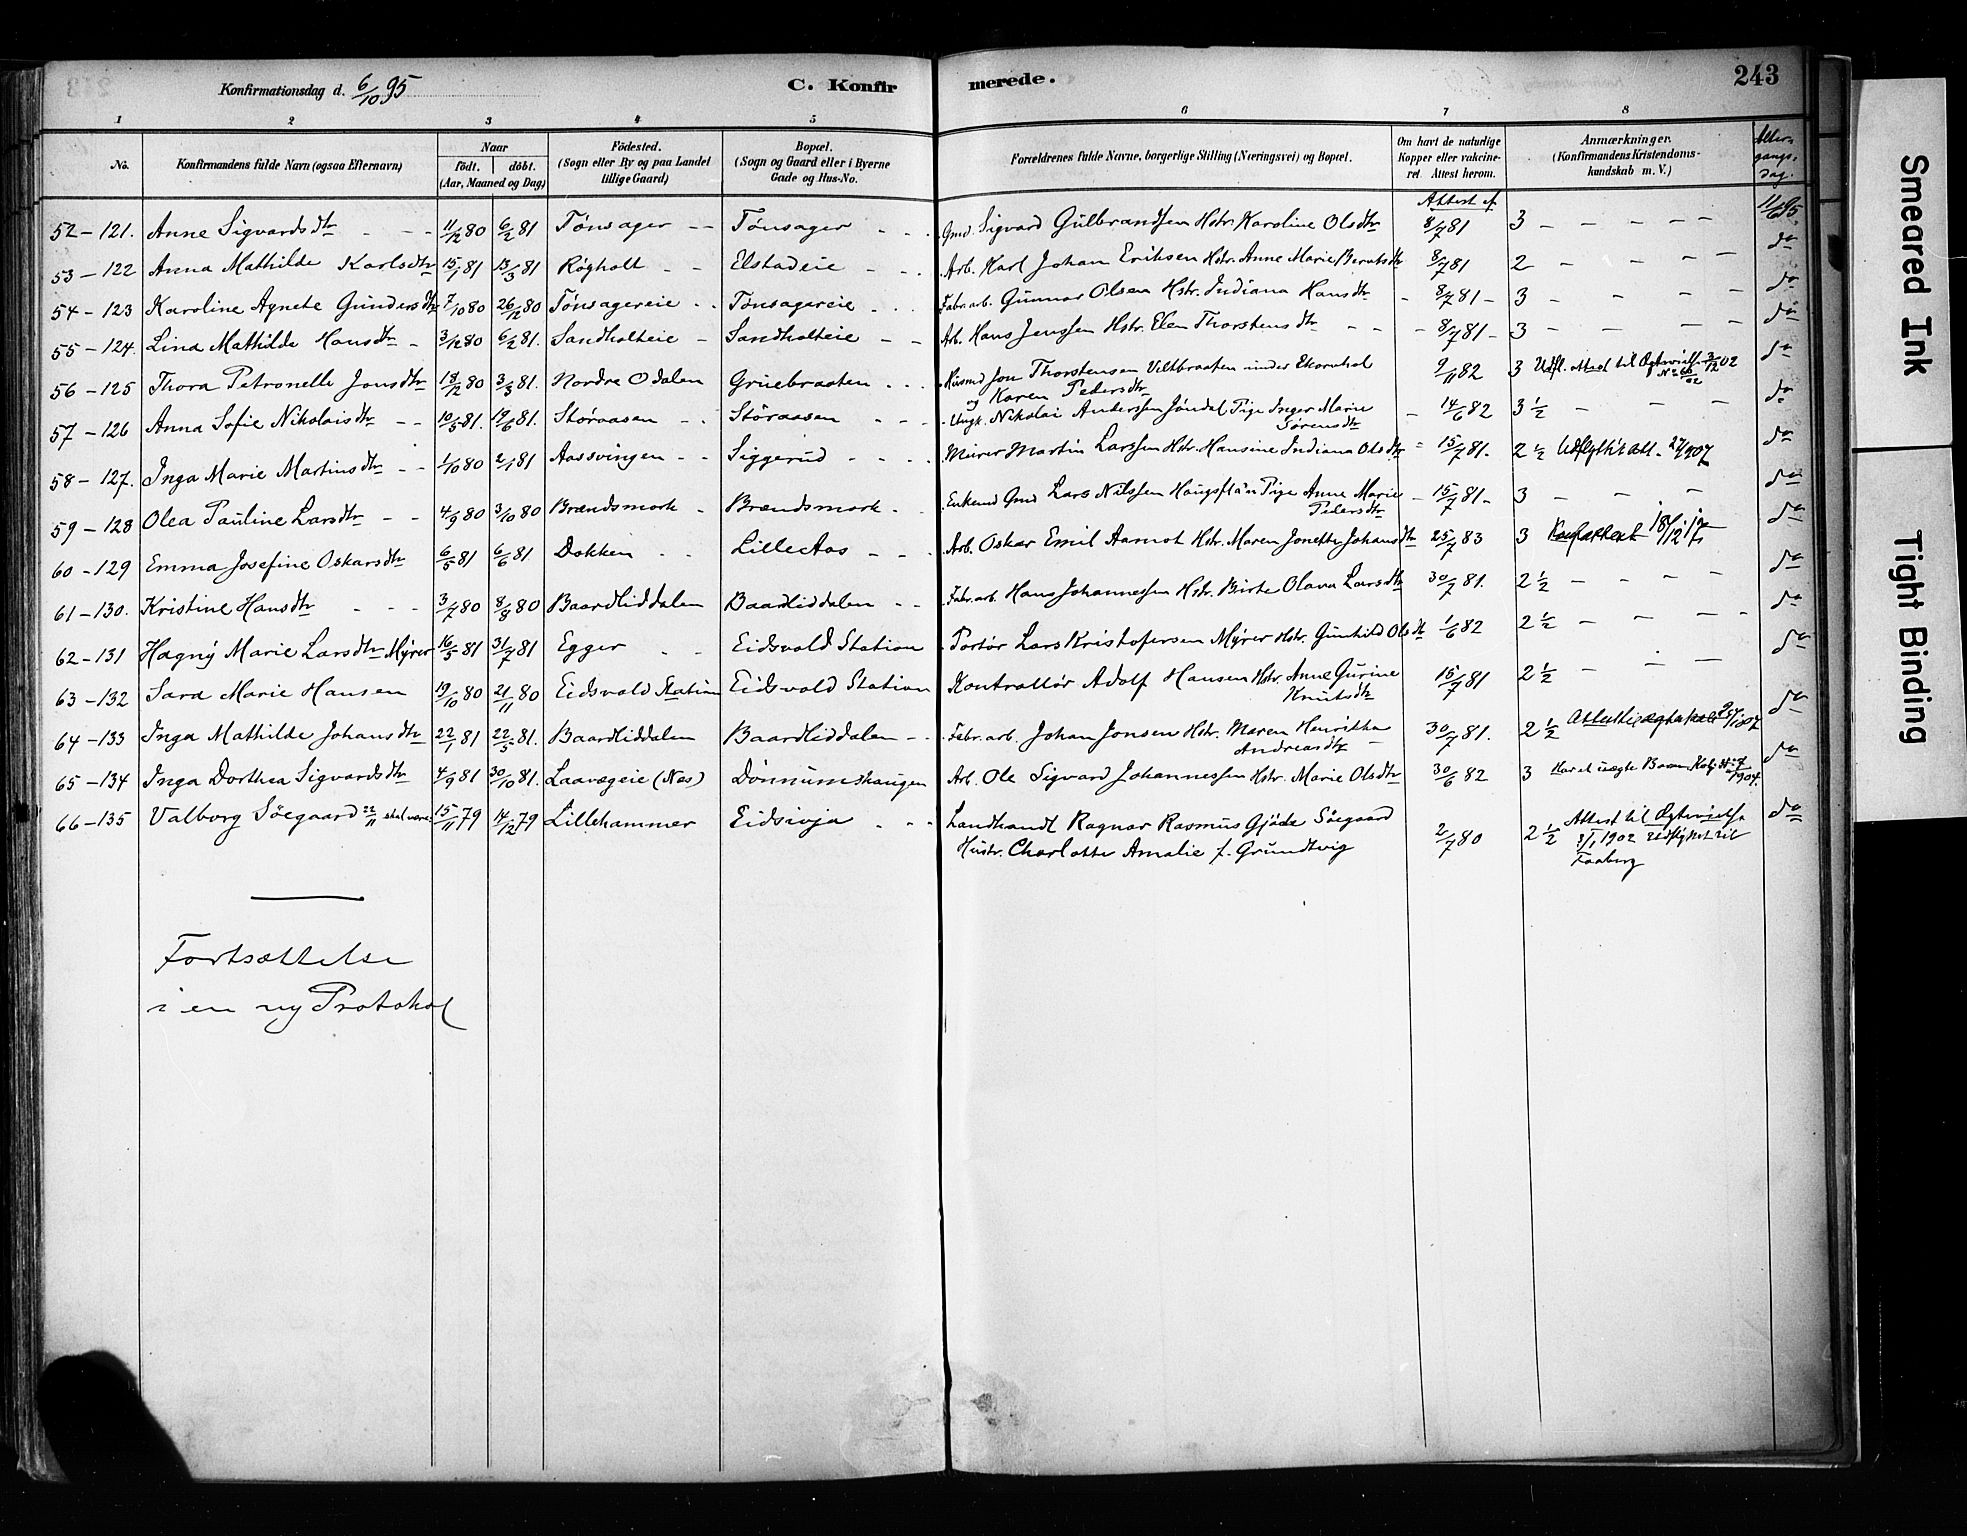 Konfirmationsdag d. 6/10 95 C. Konfirmerede. 243
1 2 3 4 5 6 7 8
No. Konfirmandens fulde Navn (ogsaa Efternavn) Naar födt. döbt. (Aar, Maaned og Dag) Födested. (Sogn eller By og paa Landet tillige Gaard) Bopæl. (Sogn og Gaard eller i Byerne Gade og Hus-No. Forældrenes fulde Navne, borgerlige Stilling (Næringsvei) og Bopæl. Om havt de naturlige Kopper eller vakcineret. Attest herom. Anmærkninger. (Konfirmandens Kristendomskundskab m. V.) Altergangsdag.
Attest af
52-121. Anne Sigvardsdtr 11/12 80 6/2 81 Tønsager Tønsager Gmd. Sigvard Gulbrandsen Hstr. Karoline Olsdtr 8/7 81 3 11/10 95.
53-122 Anna Mathilde Karlsdtr 15/1 81 13/3 81 Røgholt Elstadeie Arb. Karl Johan Eriksen Hstr. Anne Marie Berntsdtr 8/7 81 2 do
54-123 Karoline Agnete Gundersdtr 7/10 80 26/12 80 Tønsagereie Tønsagereie Fabr. arb. Gunnar Olsen Hstr. Indiana Hansdtr 8/7 81 3 do
55-124. Lina Mathilde Hansdtr 3/12 80 6/2 81. Sandholteie Sandholteie Arb. Hans Jenssen Hstr. Elen Thorstensdtr 8/7 81 3 do
56-125 Thora Petronelle Jonsdtr 18/12 80 3/3 81. Nordre Odalen Gruebraaten Husmd Jon Thorstensen Viltbraaten under Ekornhol 9/11 82 3 Udfl. attest til Ægteviels 3/12 02 do
og Karen Pedersdtr
57-126 Anna Sofie Nikolaisdtr 10/5 81. 19/6 81. Støraasen Støraasen Ungk. Nikolai Anderssen Jøndal Pige Inger Marie 14/6 82 3 1/2 do
Sørensdtr
58-127. Inga Marie Martinsdtr 1/10 80 2/1 81 Aassvingen Siggerud Murer Martin Larssen Hstr. Hansine Indiana Olsdtr 15/7 81. 2 1/2 do
59-128 Olea Pauline Larsdtr 4/9 80 3/10 80 Brændsmork Brændsmork Enkemd Gmd Lars Nilssen Pige Anne Marie 15/7 81 3 do
Pedersdtr
60-129 Emma Josefine Oskarsdtr 6/5 81 6/6 81 Dokken Lille Aas Arb. Oskar Emil Aamot Hstr. Maren Jonette Johansdtr 25/7 83 3 do
61-130. Kristine Hansdtr 3/7 80 8/8 80 Baardliddalen Baardliddalen Fabr. arb. Hans Johannessen Hstr. Birte Olava Larsdtr 30/7 81. 2 1/2 do
62-131 Hagny Marie Larsdtr Myrer 16/5 81 31/7 81 Egger Eidsvold Station Portør Lars Kristofersen Myrer Hstr. Gunhild Olsdtr 1/6 82 2 1/2 do
63-132 Sara Marie Hansen 19/10 80 21/11 80 Eidsvold Station Eidsvold Station Kontrollør Adolf Hansen Hstr. Anne Gurine 15/7 81 2 1/2 do
Knutsdtr
64-133 Inga Mathilde Johansdtr 22/1 81 22/5 81. Baardliddalen Baardliddalen Fabr. arb. Johan Jonsen Hstr. Maren Henrikka 30/7 81. 2 1/2 do
Andreasdtr
65-134 Inga Dorthea Sigvardsdtr 4/9 81 30/10 81. Laavægeie (Nes) Dønnumshaugen Arb. Ole Sigvard Johannessen Hstr. Marie Olsdtr 30/6 82 3 do
66-135 Valborg Söegaard 22/11 skal være: 15/11 79 14/12 79 Lillehammer Eidsivja Landhandl Ragnar Rasmus Gjöde Söegaard 2/7 80 2 1/2 Attest til Ægtevielse do
Hustr. Charlotte Amalie f. Grundtvig 3/1 1902 udflyttet til
Faaberg
Fortsættelse
i en ny Protokol
Smeared Ink
Tight Binding